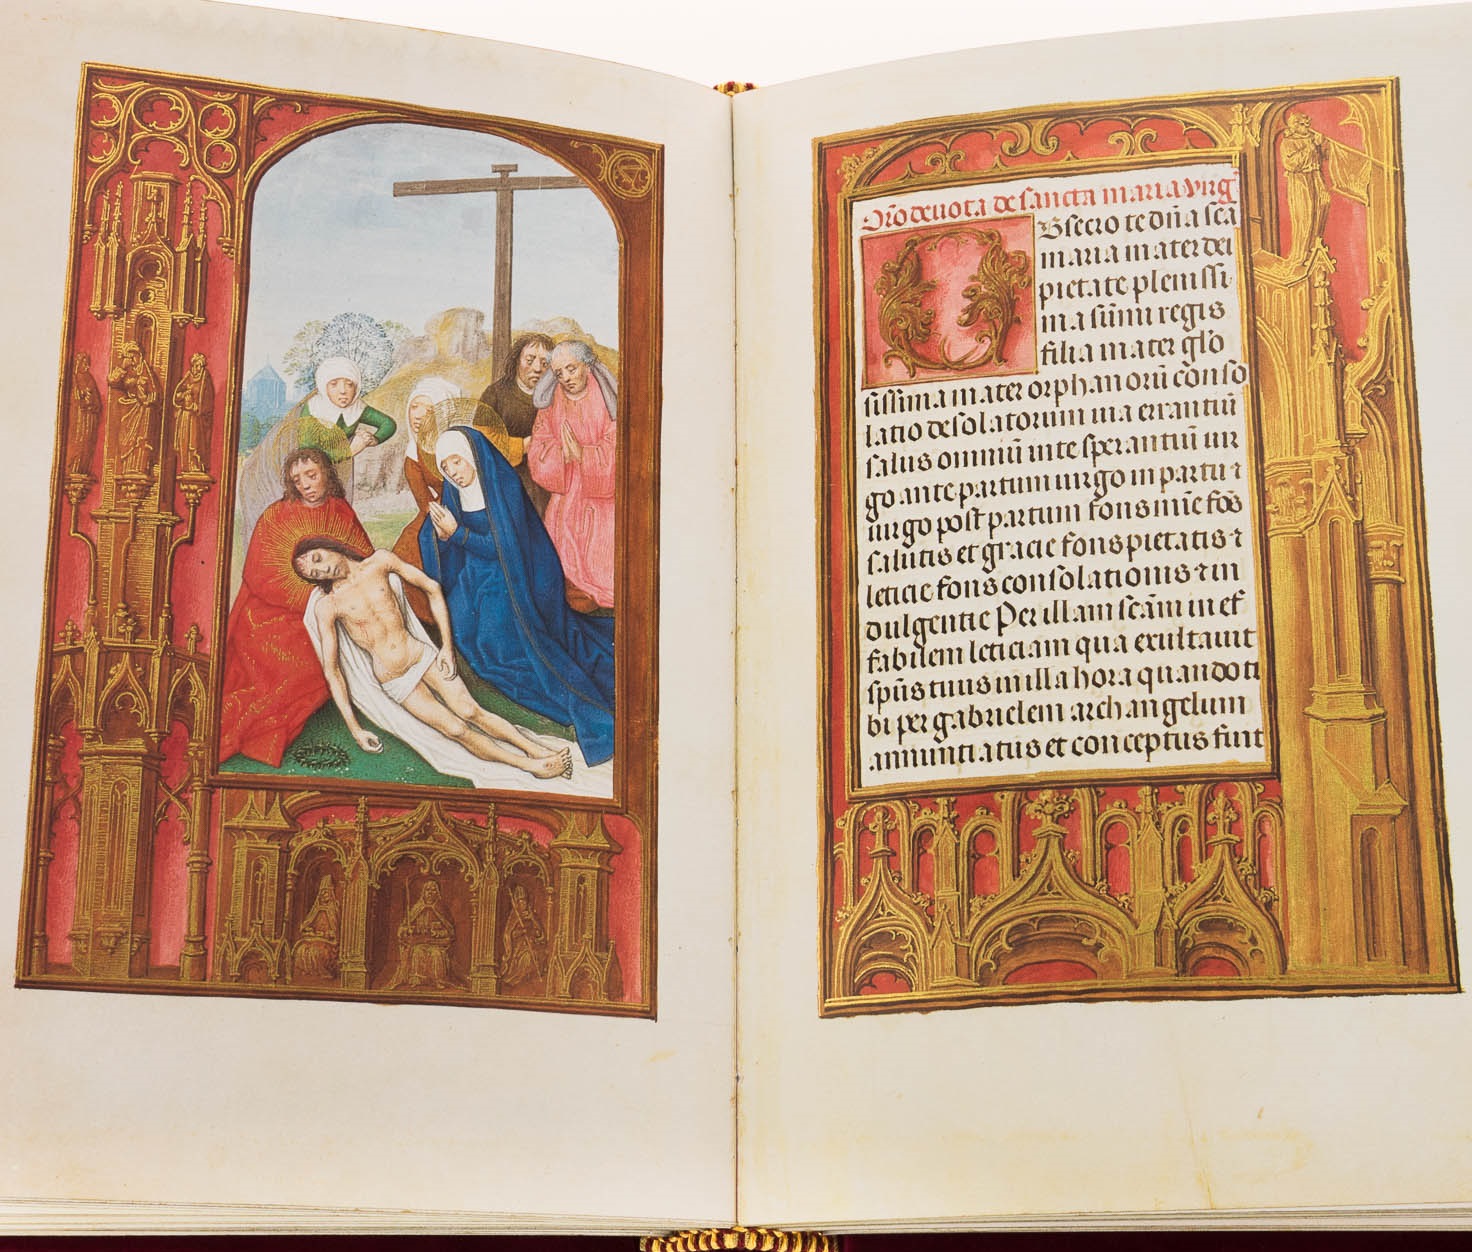 Oro͞ deuota de sancta maria virg͞
OBsecro te dn͞a sc͞a
maria mater dei
pietate plenissi
ma sum͞i regis
filia mater glo͞
sissima mater orphanoru͞ co͞nso
latio desolatorum uia errantiu͞
salus omniu͞ in te sperantiu͞ uir
go ante partum uirgo in partu ⁊
uirgo post partum fons mie͞ fo͞s
salutis et gracie fons pietatis ⁊
leticie fons consolationis ⁊ in
dulgentie Per illam sca͞m inef
fabilem leticiam qua exultauit
spu͞s tuus in illa hora quando ti
bi per gabrielem archangelum
annuntiatus et conceptus fuit